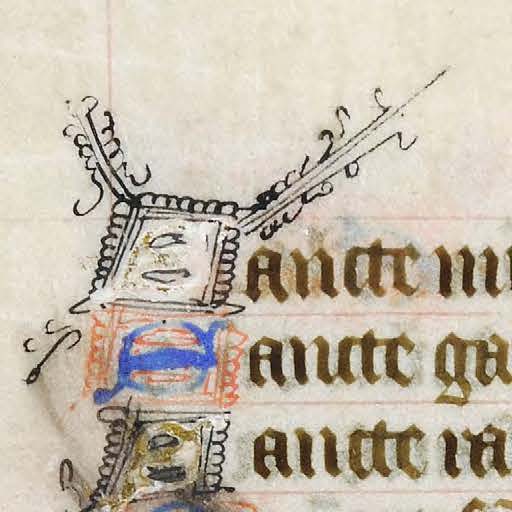 Sancte mi
Sancte ga
Sancte ra